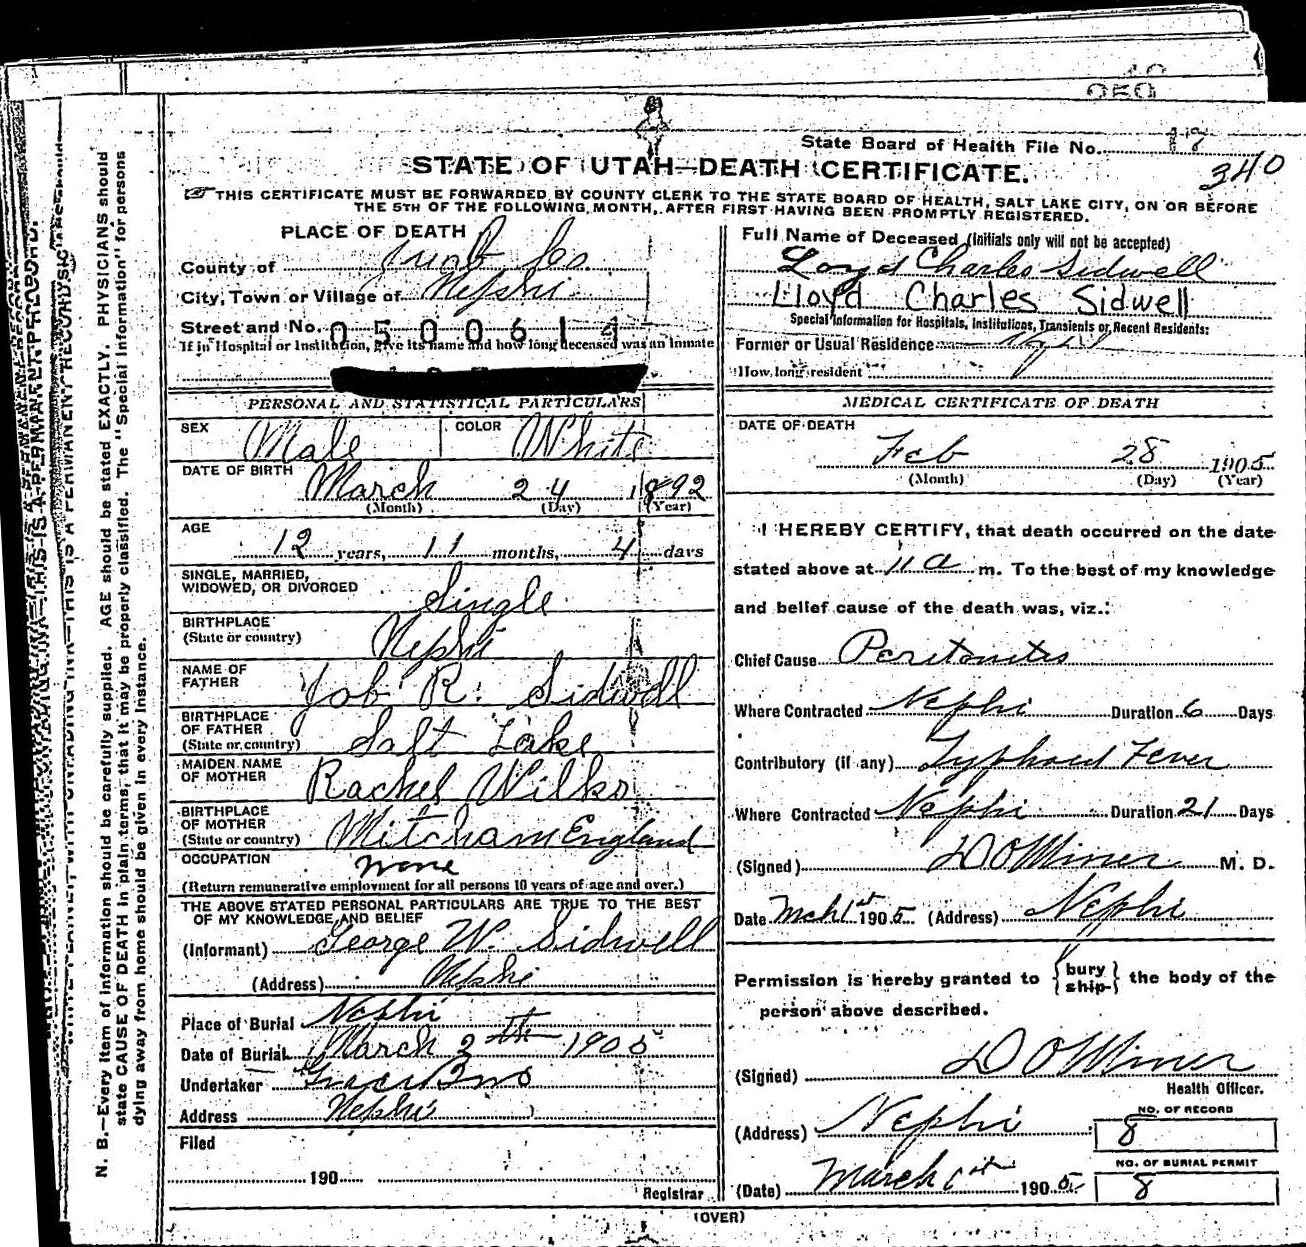 State Board of Health File No. 17
340
STATE OF UTAH—DEATH CERTIFICATE.
THIS CERTIFICATE MUST BE FORWARDED BY COUNTY CLERK TO THE STATE BOARD OF HEALTH, SALT LAKE CITY, ON OR BEFORE
THE 5TH OF THE FOLLOWING MONTH, AFTER FIRST HAVING BEEN PROMPTLY REGISTERED.
PLACE OF DEATH
County of Juab Co
City, Town or Village of Nephi
Street and No. 0500614
If in Hospital or Institution, give its name and how long deceased was an inmate
PERSONAL AND STATISTICAL PARTICULARS
SEX Male COLOR White
DATE OF BIRTH March 24 1892
(Month) (Day) (Year)
AGE
12 years, 11 months, 4 days
SINGLE, MARRIED,
WIDOWED, OR DIVORCED Single
BIRTHPLACE
(State or country) Nephi
NAME OF
FATHER Job R. Sidwell
BIRTHPLACE
OF FATHER
(State or country) Salt Lake
MAIDEN NAME
OF MOTHER Rachel Wilks
BIRTHPLACE
OF MOTHER
(State or country) Mitcham England
OCCUPATION none
(Return remunerative employment for all persons 10 years of age and over.)
THE ABOVE STATED PERSONAL PARTICULARS ARE TRUE TO THE BEST
OF MY KNOWLEDGE AND BELIEF
(Informant) George W. Sidwell
(Address) Nephi
Place of Burial Nephi
Date of Burial March 2th 1905
Undertaker Bros
Address Nephi
Filed
190
Registrar
Full Name of Deceased (Initials only will not be accepted)
Loyd Charles Sidwell
Lloyd Charles Sidwell
Special Information for Hospitals, Institutions, Transients or Recent Residents:
Former or Usual Residence Nephi
How long resident
MEDICAL CERTIFICATE OF DEATH
DATE OF DEATH
Feb 28 1905
(Month) (Day) (Year)
I HEREBY CERTIFY, that death occurred on the date
stated above at 11 a m. To the best of my knowledge
and belief cause of the death was, viz.:
Chief Cause Peritonitis
Where Contracted Nephi Duration 6 Days
Contributory (if any) Typhoid Fever
Where Contracted Nephi Duration 21 Days
(Signed) D O Miner M. D.
Date Mch 1st 1905 (Address) Nephi
Permission is hereby granted to {bury
ship} the body of the
person above described.
(Signed) D O Miner
Health Officer.
(Address) Nephi
NO. OF RECORD
8
(Date) March 1st 1905
NO. OF BURIAL PERMIT
8
(OVER)
N. B.—Every item of information should be carefully supplied. AGE should be stated EXACTLY. PHYSICIANS should
state CAUSE OF DEATH in plain terms, that it may be properly classified. The "Special Information" for persons
dying away from home should be given in every instance.